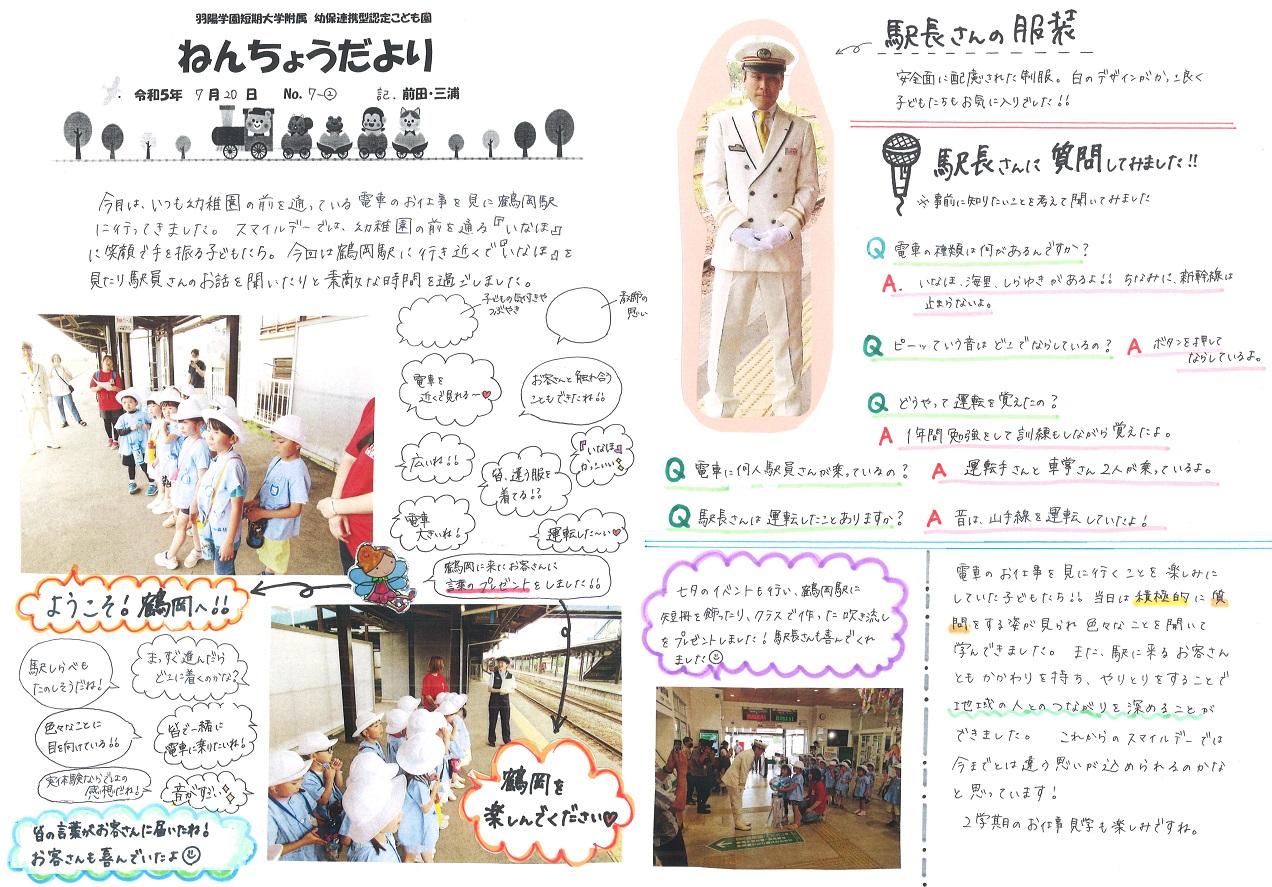 羽陽学園短期大学附属 幼保連携型認定こども園
ねんちょうだより
令和5年 7月20日 No.7-② 記.前田・三浦
今月は、いつも幼稚園の前を通っている電車のお仕事を見に鶴岡駅
に行ってきました。スマイルデーでは、幼稚園の前を通る『いなほ』
に笑顔で手を振る子どもたち。今回は鶴岡駅に行き近くで『いなほ』を
見たり駅員さんのお話を聞いたりと素敵な時間を過ごしました。
子どもの気付きや
つぶやき
教師の
思い
電車を
近くで見れる〜♥
お客さんと触れ合う
こともできたね!!
広いね!!
皆、違う服を
着てる!?
『いなほ』
かっこいい
電車
大きいね!
運転した〜い♥
鶴岡に来たお客さんに
言葉のプレゼントをしました!!
ようこそ!鶴岡へ!!
駅しらべも
たのしそうだね!
まっすぐ進んだら
どこに着くのかな?
色々なことに
目を向けている!!
皆で一緒に
電車に乗りたいね!
実体験ならではの
感想だね!
音がすごい
皆の言葉がお客さんに届いたね!
お客さんも喜んでいたよ
鶴岡を
楽しんでください♥
駅長さんの服装
安全面に配慮された制服。白のデザインがかっこ良く
子どもたちもお気に入りでした!!
駅長さんに質問してみました!!
※事前に知りたいことを考えて聞いてみました
Q 電車の種類は何があるんですか?
A. いなほ、海里、しらゆきがあるよ!! ちなみに、新幹線は
止まらないよ。
Q ピーッていう音はどこでならしているの? A ボタンを押して
ならしているよ。
Q どうやって運転を覚えたの?
A 1年間勉強をして訓練もしながら覚えたよ。
Q 電車に何人駅員さんが乗っているの? A 運転手さんと車掌さん2人が乗っているよ。
Q 駅長さんは運転したことありますか? A 昔は、山手線を運転していたよ!
七夕のイベントも行い、鶴岡駅に
短冊を飾ったり、クラスで作った吹き流し
をプレゼントしました!駅長さんも喜んでくれ
ました
電車のお仕事を見に行くことを楽しみに
していた子どもたち!! 当日は積極的に質
問をする姿が見られ色々なことを聞いて
学んできました。また、駅に来るお客さん
ともかかわりを持ち、やりとりをすることで
地域の人とのつながりを深めることが
できました。 これからのスマイルデーでは
今までとは違う思いが込められるのかな
と思っています!
2学期のお仕事見学も楽しみですね。